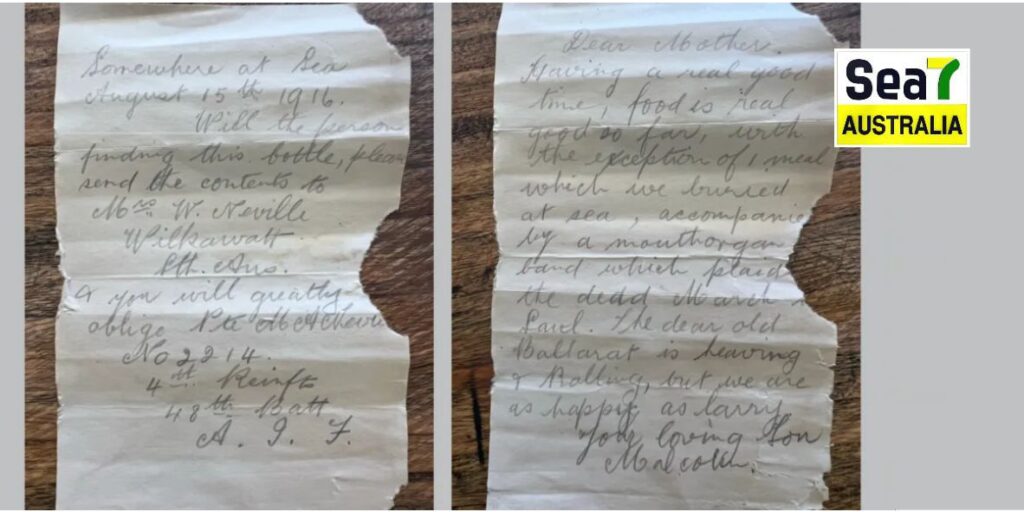 Somewhere at Sea
August 15th 1916.
Will the person
finding this bottle, please
send the contents to
Mrs W. Neville
Wilkawatt
Sth. Aus.
& you will greatly
oblige Pte M A Nevil
No 2214.
4th Reinft
48th Batt
A. I. F.
Dear Mother.
Having a real good
time, food is real
good so far, with
the exception of 1 meal
which we buried
at sea, accompanie
by a mouthorgan
band which plaid
the dead March
Saul. The dear old
Ballarat is heaving
& Rolling, but we are
as happy as larry
Your loving Son
Malcolm.
Sea7
AUSTRALIA